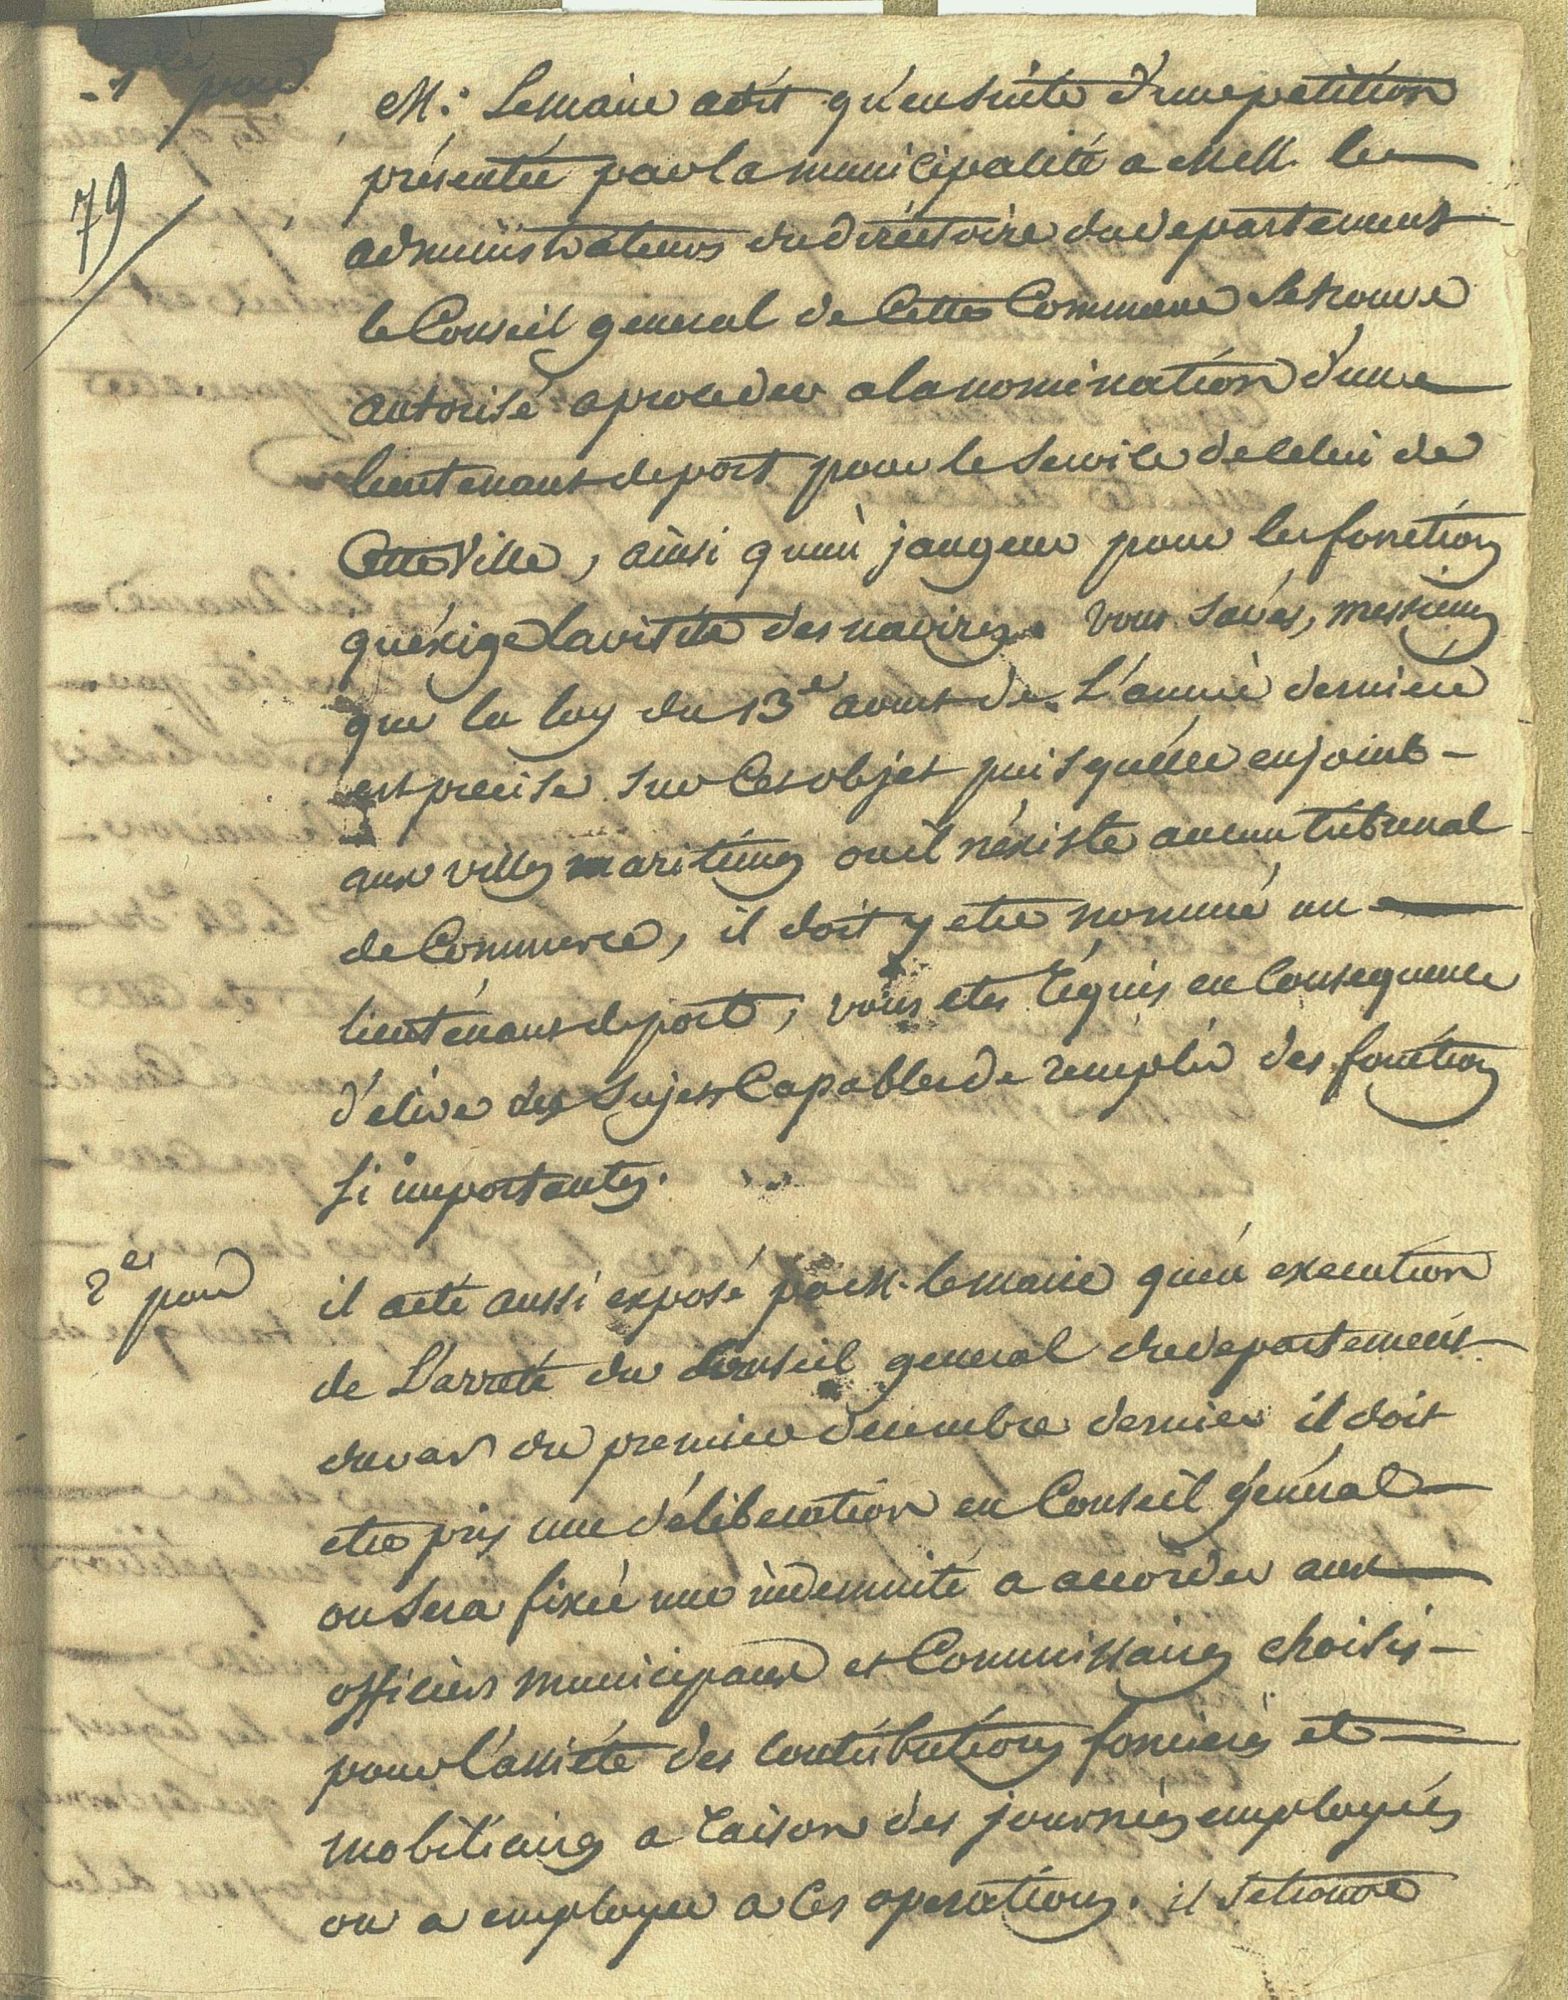 1er point
79
M. Lemaire a dit qu'ensuite d'une petition
présentée par la municipalité a MM. les
administrateurs du diréctoire du departement
le Conseil general de Cette Commune Se trouve
autorisé a proceder a la nomination d'une
lieutenant de port pour le Service de celui de
Cette Ville, ainsi qu'un jaugeur pour les fonction
qu'éxige la visite des navires. vous Savés, messieurs
que la loy du 13e aoust de L'année derniere
est precise sur Cet objet puis qu'elle enjoint
aux villes maritimes ou il n'éxiste aucun tribunal
de Commerce, il doit y etre nommé un
lieutenant de port, vous etes Requis en Consequence
d'elire des Sujets Capables de remplir des fonction
Si importantes.
2e point
il a été aussi exposé par M. le maire qu'en execution
de L'arreté du Conseil general du departement
du var du premier decembre dernier il doit
etre pris une déliberation en Conseil général
ou Sera fixée une indemnité a accorder aux
officiers municipaux et Commissaires choisis
pour l'assiéte des Contributions foncieres et
mobiliaires a Raison des journées employées
ou a employer a Ces operations. il Setrouve